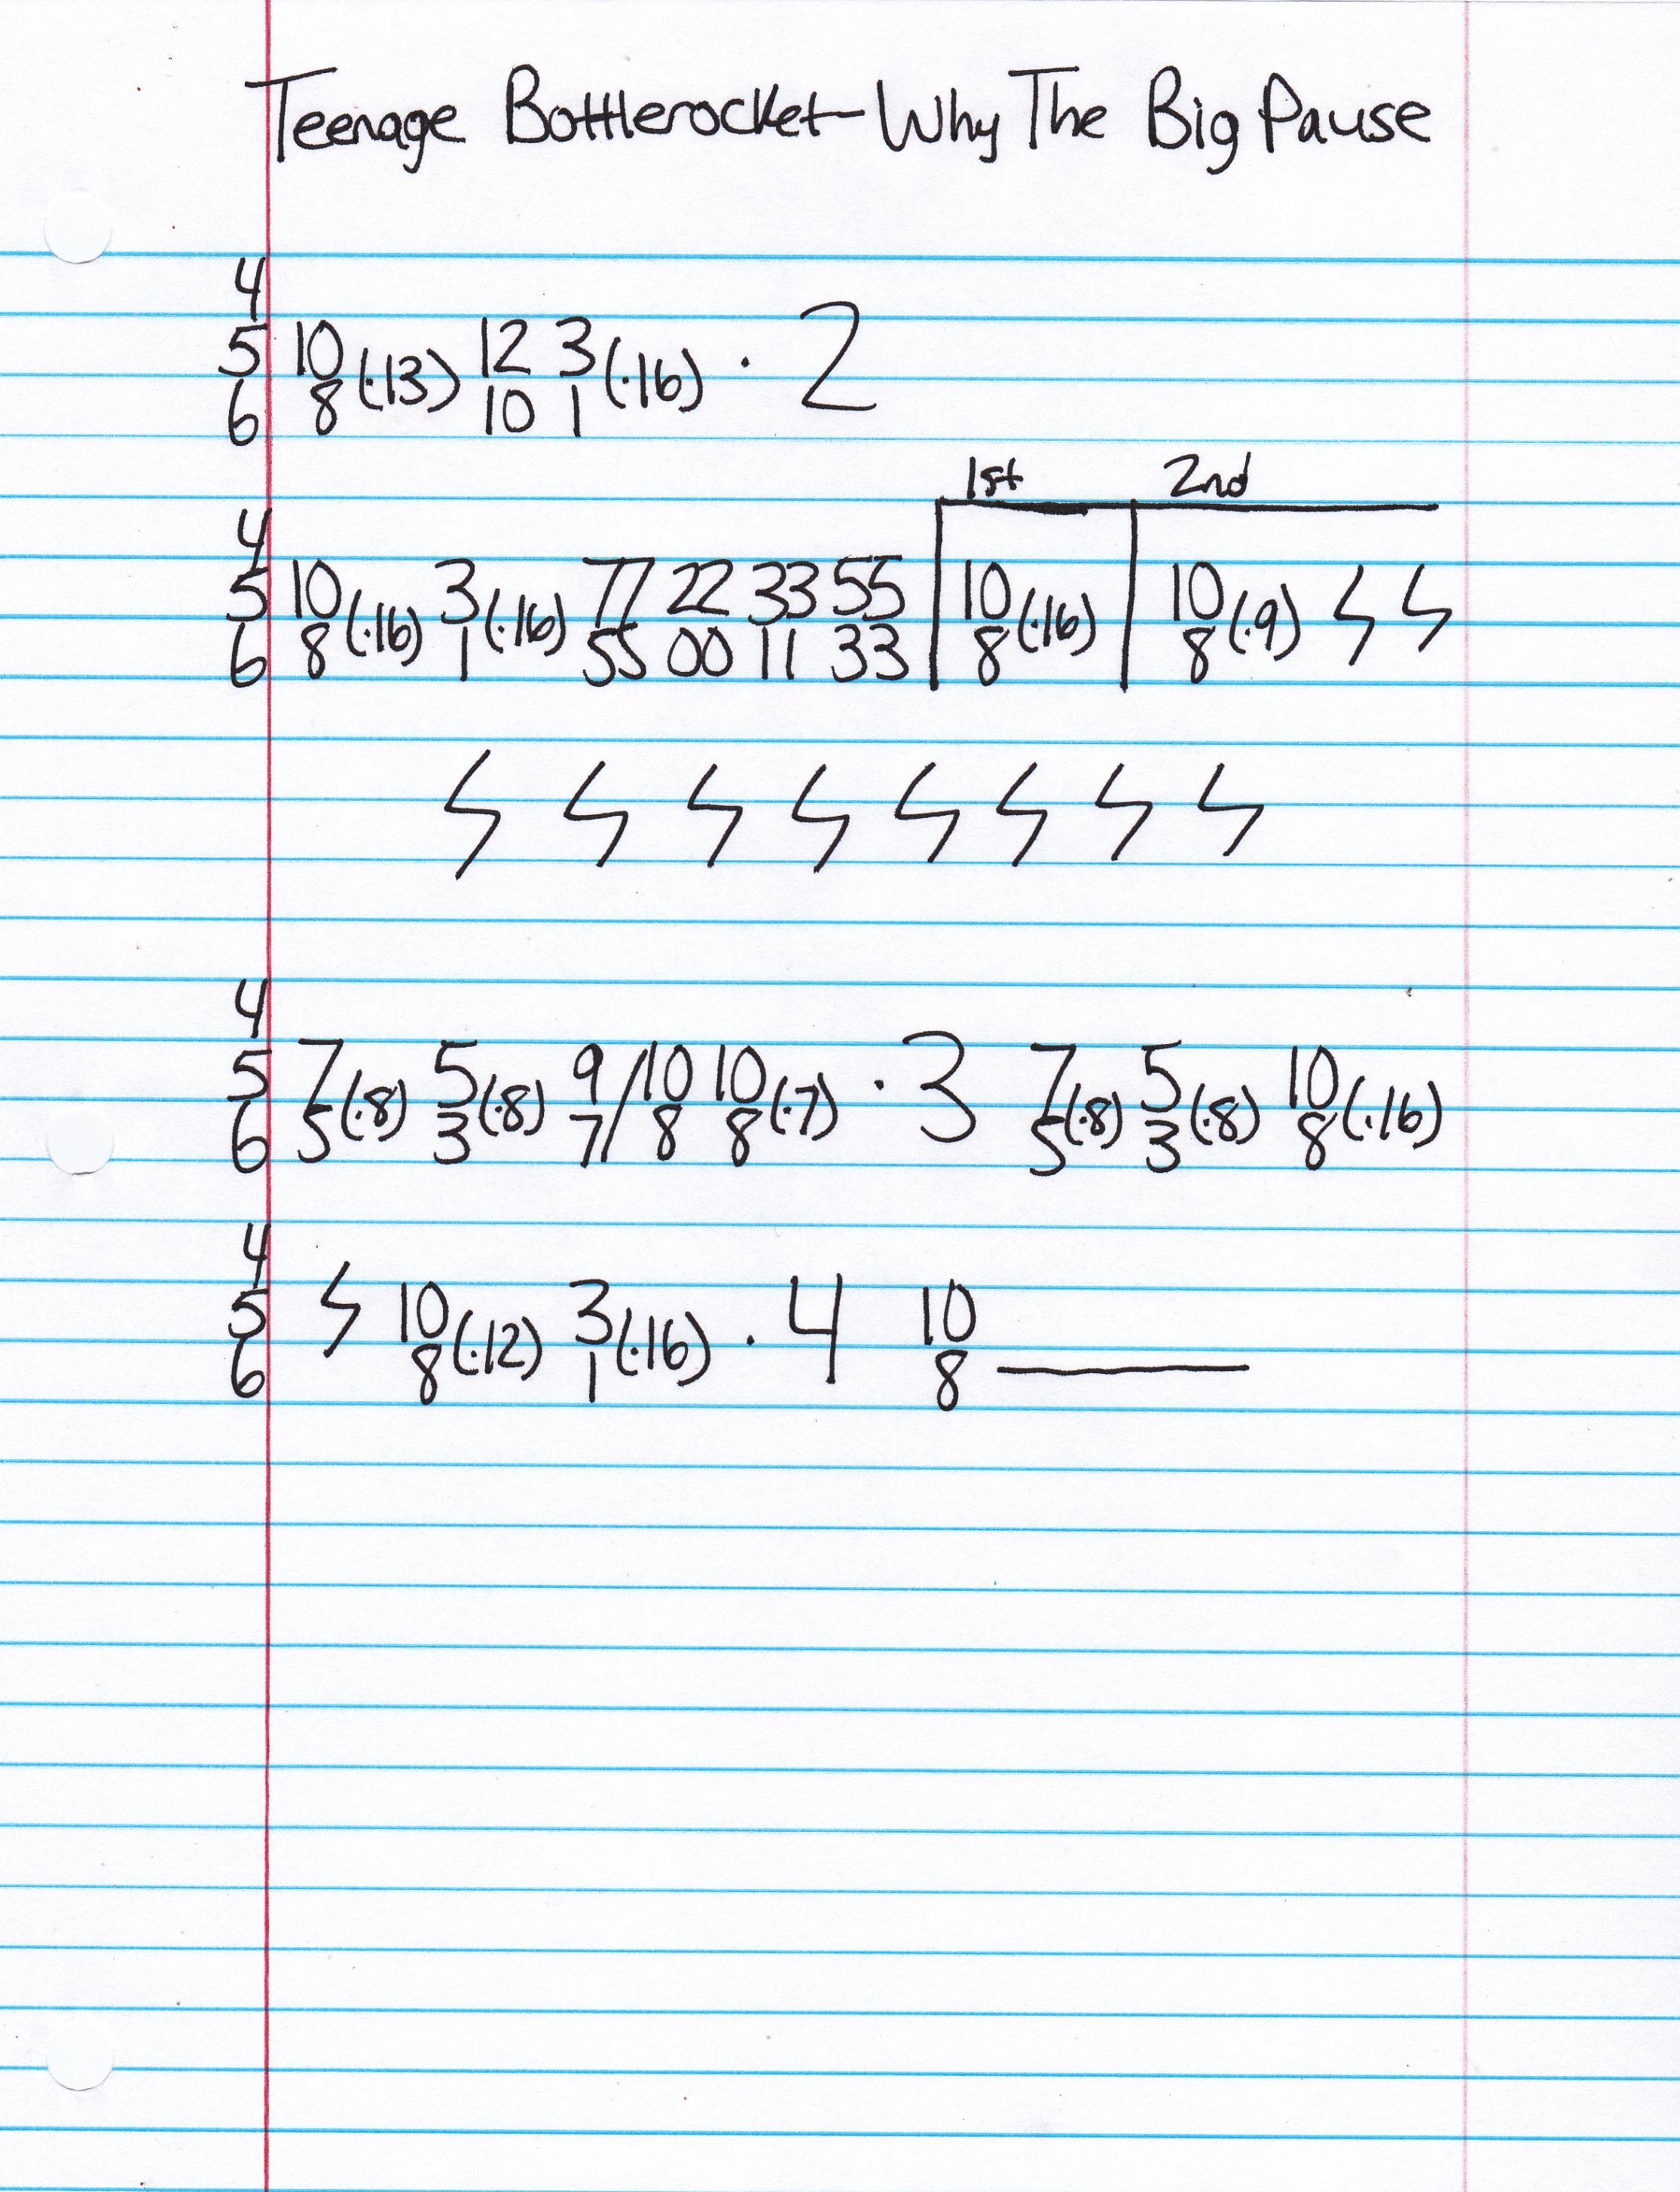 Teenage Bottlerocket - Why The Big Pause
4
5 10 (·13) 12 3 (·16) · 2
6 8 10 1
1st 2nd
4
5 10 (·16) 3 (·16) 77 22 33 55 10 (·16) 10 (·9)
6 8 1 55 00 11 33 8 8
4
5 7 (·8) 5 (·8) 9 / 10 10 (·7) · 3 7 (·8) 5 (·8) 10 (·16)
6 5 3 7 8 8 5 3 8
4
5 10 (·12) 3 (·16) · 4 10
6 8 1 8